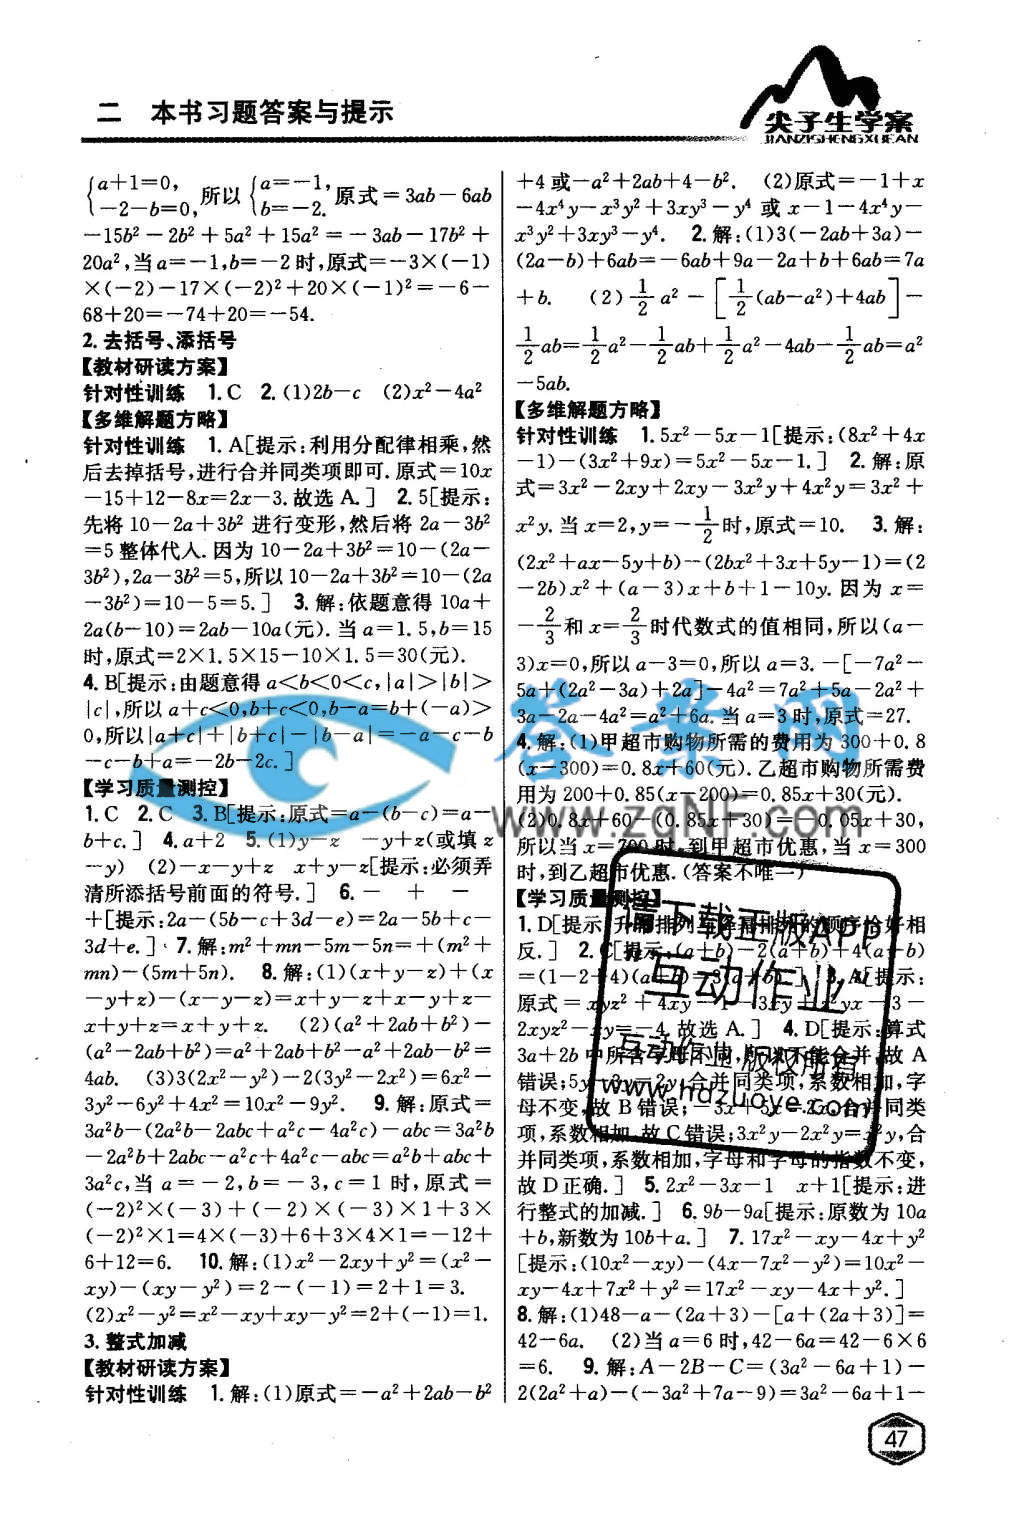 二 本书习题答案与提示
尖子生学案
JIANZISHENGXUEAN
{a+1=0, -2-b=0, 所以 {a=-1, b=-2. 原式=3ab-6ab
-15b²-2b²+5a²+15a²=-3ab-17b²+
20a²,当a=-1,b=-2时,原式=-3×(-1)
×(-2)-17×(-2)²+20×(-1)²=-6-
68+20=-74+20=-54.
2. 去括号、添括号
【教材研读方案】
针对性训练 1. C 2. (1)2b-c (2)x²-4a²
【多维解题方略】
针对性训练 1. A[提示:利用分配律相乘,然
后去掉括号,进行合并同类项即可.原式=10x
-15+12-8x=2x-3.故选A.] 2. 5[提示:
先将10-2a+3b²进行变形,然后将2a-3b²
=5整体代人.因为10-2a+3b²=10-(2a-
3b²),2a-3b²=5,所以10-2a+3b²=10-(2a
-3b²)=10-5=5.] 3. 解:依题意得10a+
2a(b-10)=2ab-10a(元).当a=1.5,b=15
时,原式=2×1.5×15-10×1.5=30(元).
4. B[提示:由题意得a<b<0<c,|a|>|b|>
|c|,所以a+c<0,b+c<0,b-a=b+(-a)>
0,所以|a+c|+|b+c|-|b-a|=-a-c-b
-c-b+a=-2b-2c.]
【学习质量测控】
1. C 2. C 3. B[提示:原式=a-(b-c)=a-
b+c.] 4. a+2 5. (1)y-z -y+z(或填z
-y) (2)-x-y+z x+y-z[提示:必须弄
清所添括号前面的符号.] 6. - + -
+[提示:2a-(5b-c+3d-e)=2a-5b+c-
3d+e.] 7. 解:m²+mn-5m-5n=+(m²+
mn)-(5m+5n). 8. 解:(1)(x+y-z)+(x
-y+z)-(x-y-z)=x+y-z+x-y+z-
x+y+z=x+y+z. (2)(a²+2ab+b²)-
(a²-2ab+b²)=a²+2ab+b²-a²+2ab-b²=
4ab. (3)3(2x²-y²)-2(3y²-2x²)=6x²-
3y²-6y²+4x²=10x²-9y². 9. 解:原式=
3a²b-(2a²b-2abc+a²c-4a²c)-abc=3a²b
-2a²b+2abc-a²c+4a²c-abc=a²b+abc+
3a²c,当a=-2,b=-3,c=1时,原式=
(-2)²×(-3)+(-2)×(-3)×1+3×
(-2)²×1=4×(-3)+6+3×4×1=-12+
6+12=6. 10. 解:(1)x²-2xy+y²=(x²-
xy)-(xy-y²)=2-(-1)=2+1=3.
(2)x²-y²=x²-xy+xy-y²=2+(-1)=1.
3. 整式加减
【教材研读方案】
针对性训练 1. 解:(1)原式=-a²+2ab-b²
+4或-a²+2ab+4-b². (2)原式=-1+x
-4x⁴y-x³y²+3xy³-y⁴或x-1-4x⁴y-
x³y²+3xy³-y⁴. 2. 解:(1)3(-2ab+3a)-
(2a-b)+6ab=-6ab+9a-2a+b+6ab=7a
+b. (2)1/2a²-[1/2(ab-a²)+4ab]-
1/2ab=1/2a²-1/2ab+1/2a²-4ab-1/2ab=a²
-5ab.
【多维解题方略】
针对性训练 1. 5x²-5x-1[提示:(8x²+4x
-1)-(3x²+9x)=5x²-5x-1.] 2. 解:原
式=3x²-2xy+2xy-3x²y+4x²y=3x²+
x²y.当x=2,y=-1/2时,原式=10. 3. 解:
(2x²+ax-5y+b)-(2bx²+3x+5y-1)=(2
-2b)x²+(a-3)x+b+1-10y.因为x=
-2/3和x=2/3时代数式的值相同,所以(a-
3)x=0,所以a-3=0,所以a=3. -[-7a²-
5a+(2a²-3a)+2a]-4a²=7a²+5a-2a²+
3a-2a-4a²=a²+6a.当a=3时,原式=27.
4. 解:(1)甲超市购物所需的费用为300+0.8
(x-300)=0.8x+60(元).乙超市购物所需费
用为200+0.85(x-200)=0.85x+30(元).
(2)0.8x+60-(0.85x+30)=-0.05x+30,
所以当x=700时,到甲超市优惠,当x=300
时,到乙超市优惠.(答案不唯一)
【学习质量测控】
1. D[提示:升幂排列与降幂排列的顺序恰好相
反.] 2. C[提示:(a+b)-2(a+b)+4(a+b)
=(1-2+4)(a+b)=3(a+b).] 3. A[提示:
原式=xyz²+4xy-1-3xy+z²yx-3-
2xyz²-xy=-4.故选A.] 4. D[提示:算式
3a+2b中所含字母不同,所以不能合并,故A
错误;5y-3y=2y,合并同类项,系数相加,字
母不变,故B错误;-3x+5x=2x,合并同类
项,系数相加,故C错误;3x²y-2x²y=x²y,合
并同类项,系数相加,字母和字母的指数不变,
故D正确.] 5. 2x²-3x-1 x+1[提示:进
行整式的加减.] 6. 9b-9a[提示:原数为10a
+b,新数为10b+a.] 7. 17x²-xy-4x+y²
[提示:(10x²-xy)-(4x-7x²-y²)=10x²-
xy-4x+7x²+y²=17x²-xy-4x+y².]
8. 解:(1)48-a-(2a+3)-[a+(2a+3)]=
42-6a. (2)当a=6时,42-6a=42-6×6
=6. 9. 解:A-2B-C=(3a²-6a+1)-
2(2a²+a)-(-3a²+7a-9)=3a²-6a+1-
47
答案网
www.zqNF.com
请下载正版APP
互动作业
互动作业 版权所有
www.hdzuoye.com